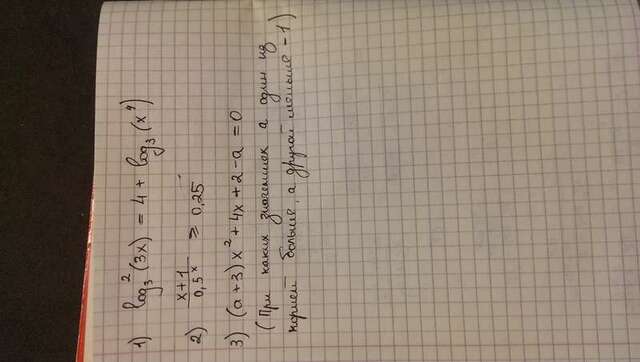 1) log₃²(3x) = 4 + log₃(x⁹)
2) x+1 / 0,5x ≥ 0,25
3) (a+3)x² + 4x + 2 - a = 0
(При каких значениях а один из
корней больше, а другой меньше -1)